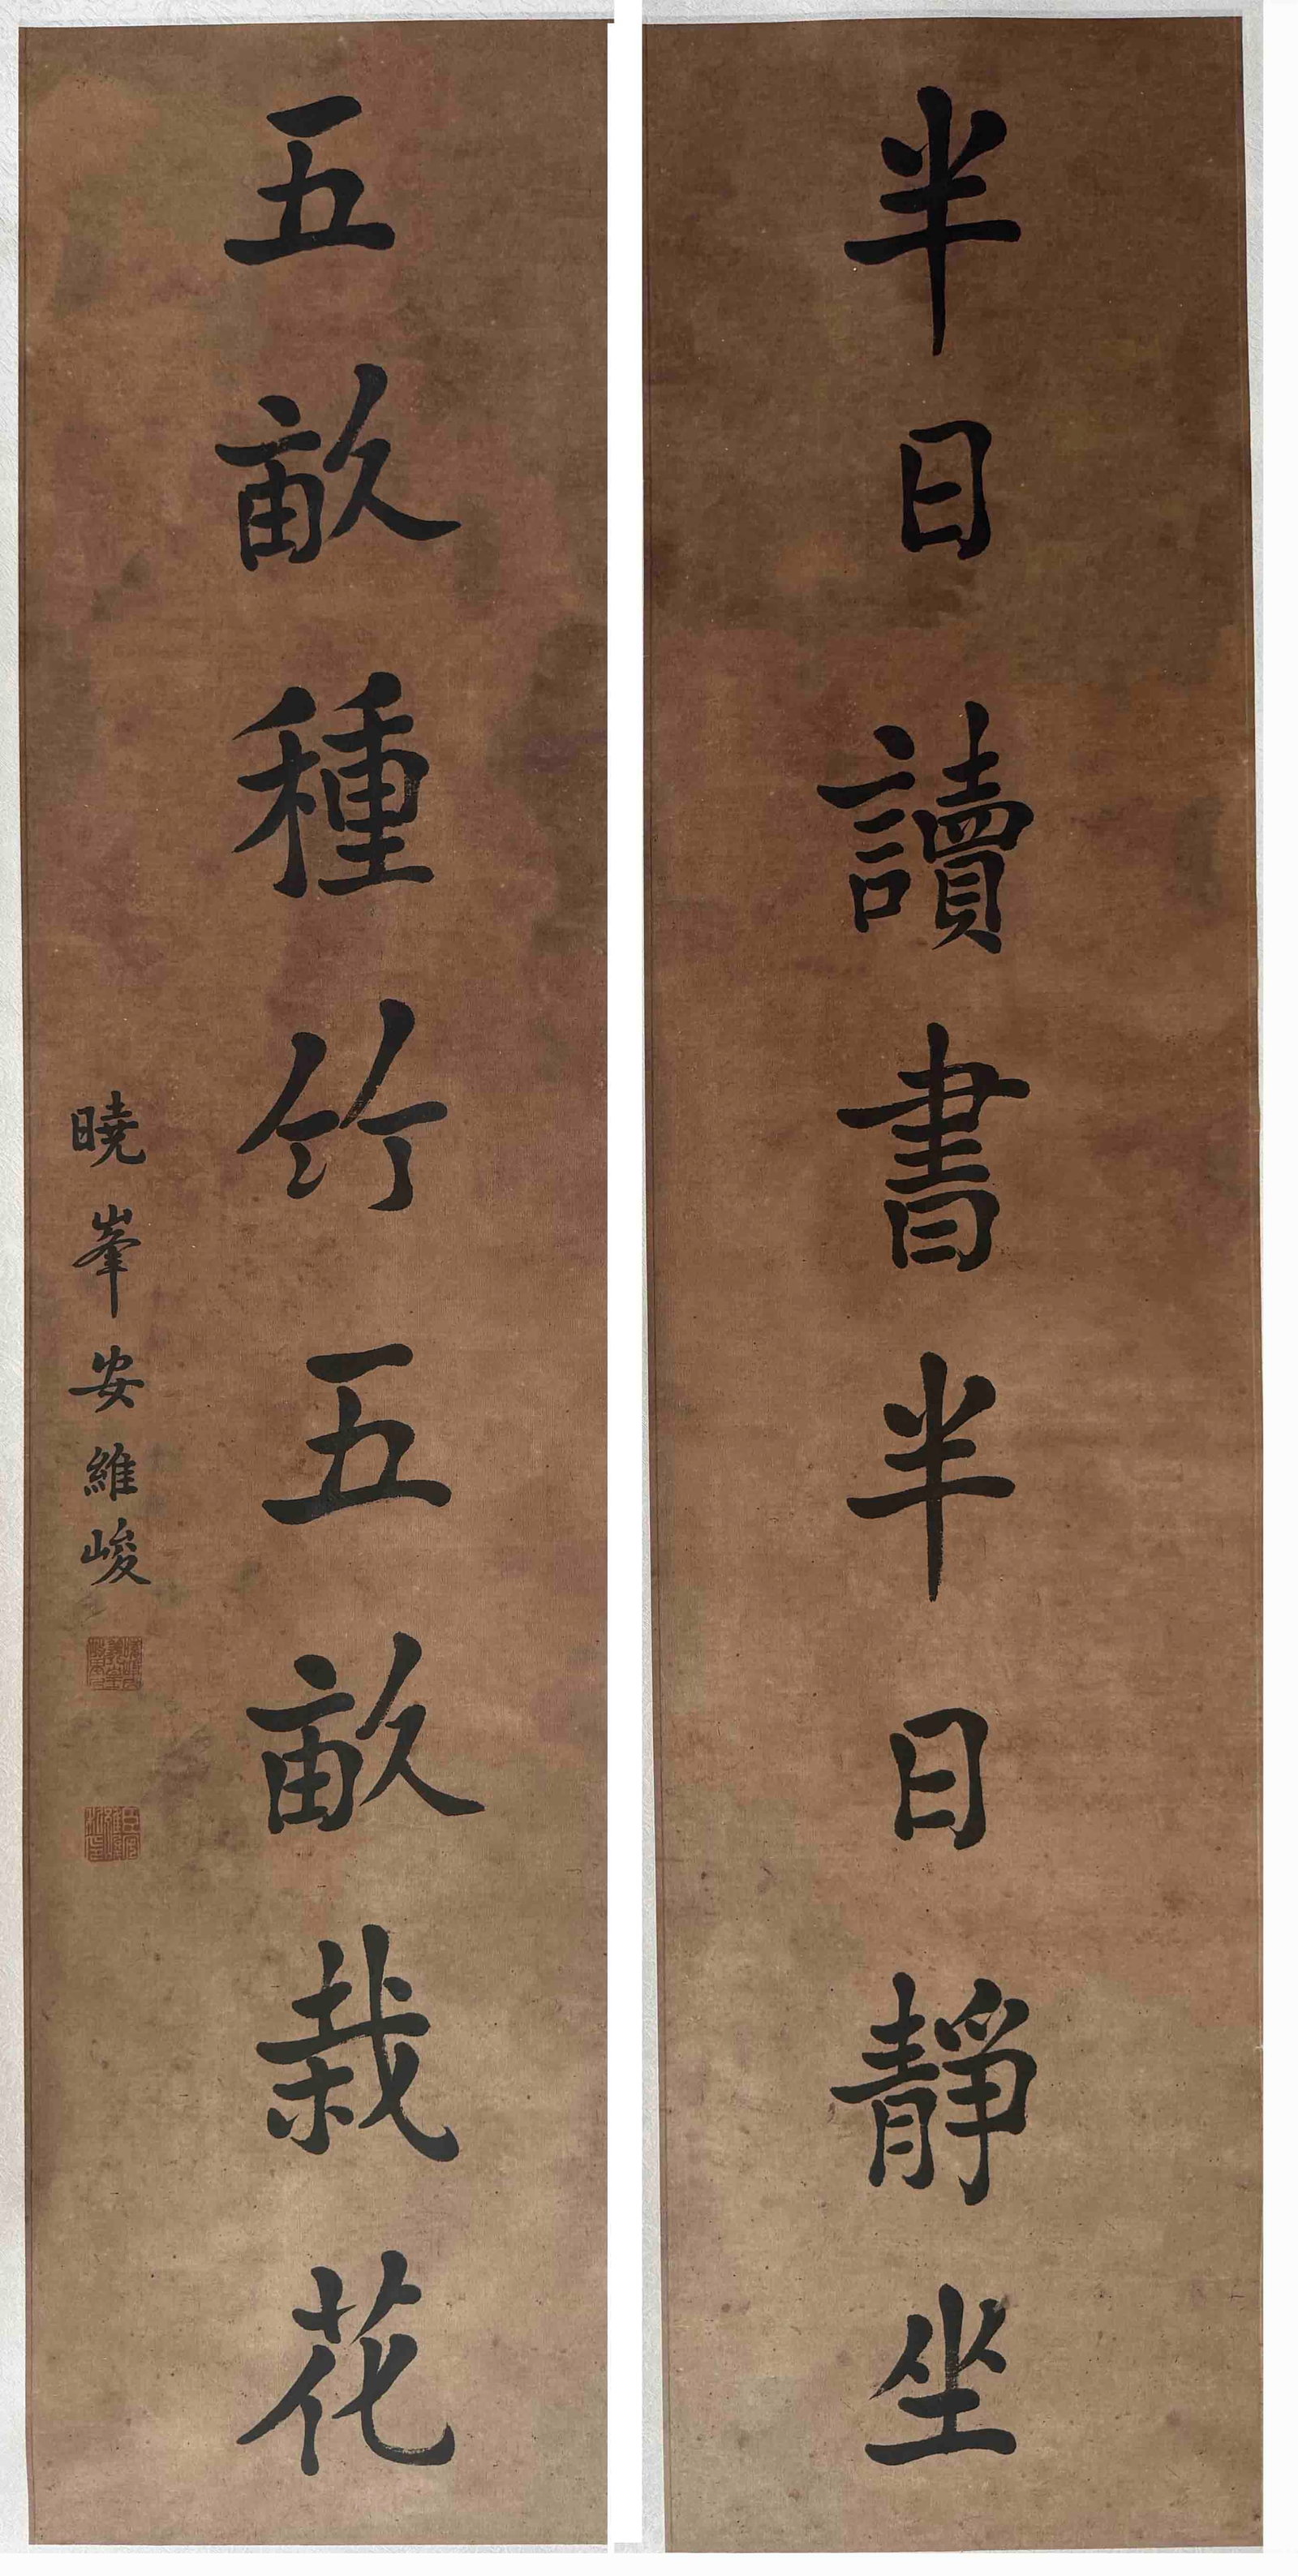 半日讀書半日靜坐
五畝種竹五畝栽花
曉峯安維峻